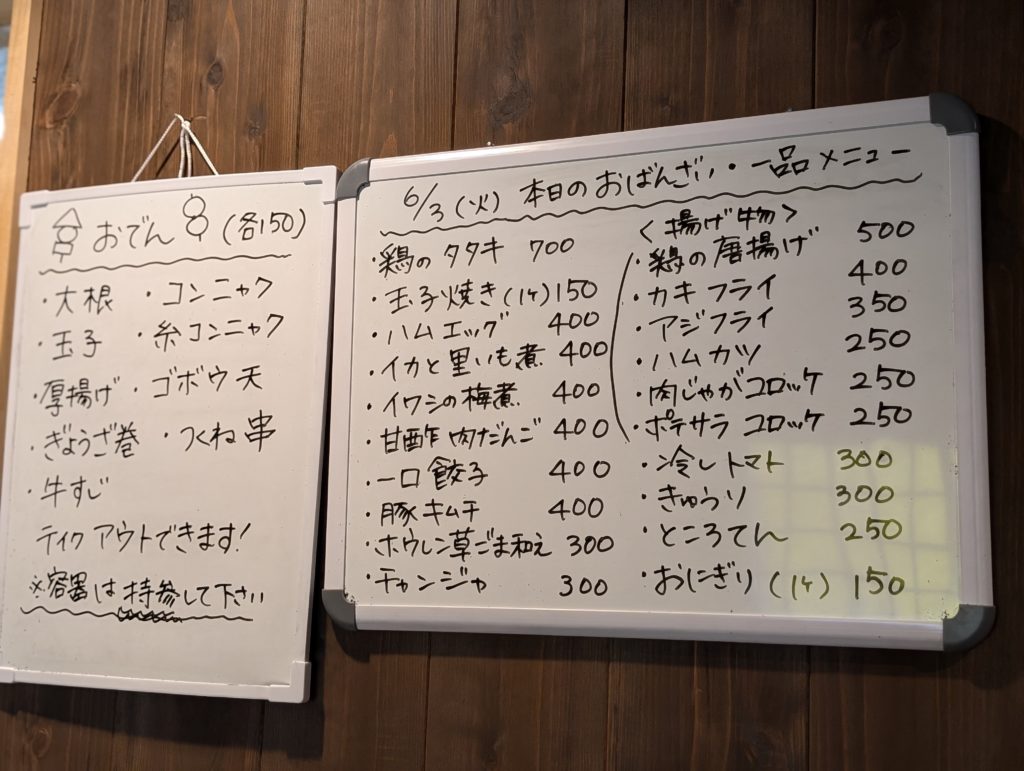 おでん (各150)
・大根 ・コンニャク
・玉子 ・糸コンニャク
・厚揚げ ・ゴボウ天
・ぎょうざ巻 ・つくね串
・牛すじ
テイクアウトできます!
※容器は持参して下さい
6/3(火) 本日のおばんざい・一品メニュー
・鶏のタタキ 700
・玉子焼き(1ヶ)150
・ハムエッグ 400
・イカと里いも煮 400
・イワシの梅煮 400
・甘酢肉だんご 400
・一口餃子 400
・豚キムチ 400
・ホウレン草ごま和え 300
・チャンジャ 300
<揚げ物>
・鶏の唐揚げ 500
・カキフライ 400
・アジフライ 350
・ハムカツ 250
・肉じゃがコロッケ 250
・ポテサラコロッケ 250
・冷しトマト 300
・きゅうり 300
・ところてん 250
・おにぎり(1ヶ) 150